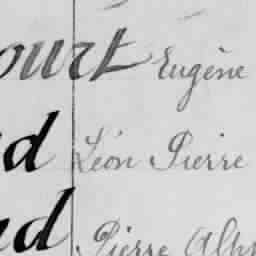 ourt Eugène
d Léon Pierre
d Pierre Alph